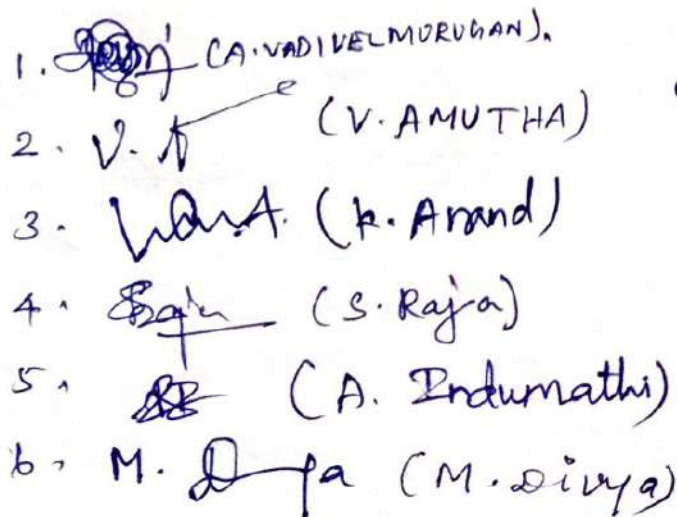 1. (A.VADIVELMURUGAN).
2. V.A (V. AMUTHA)
3. (K. Anand)
4. (S. Raja)
5. (A. Indumathi)
6. M. Divya (M. Divya)